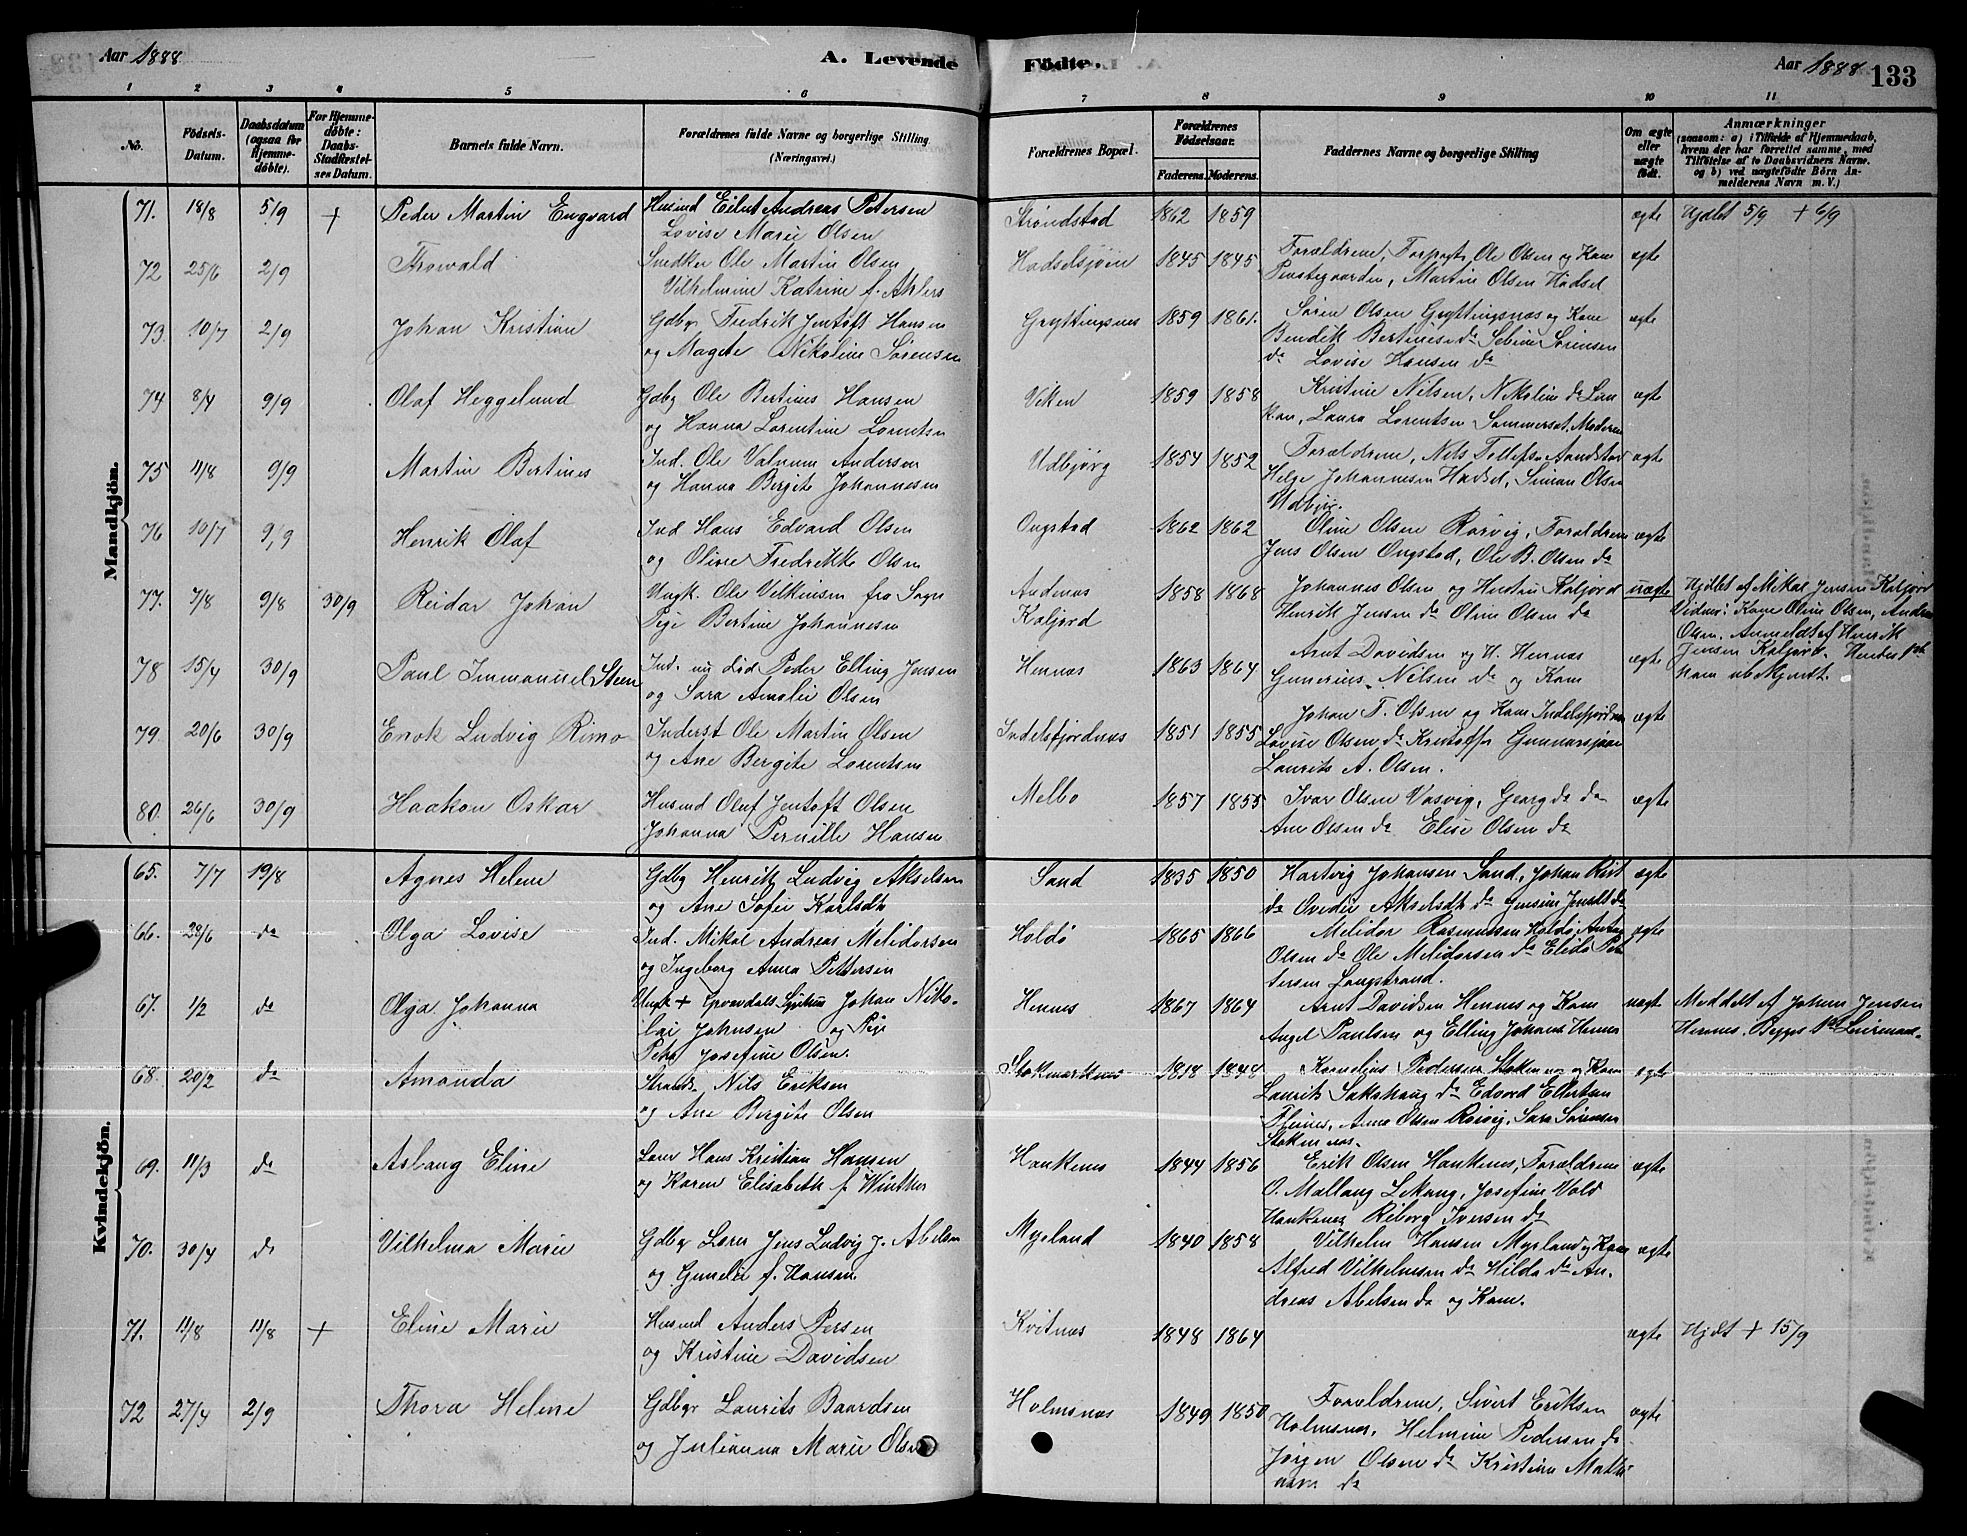 Aar 1888
A. Levende
Födte.
Aar 1888
133
1 2 3 4 5 6 7 8 9 10 11
No.
Födsels-Datum.
Daabsdatum (ogsaa for Hjemmedöbte).
For Hjemmedöbte: Daabs-Stadfæstelses Datum.
Barnets fulde Navn.
Forældrenes fulde Navne og borgerlige Stilling (Næringsvei.)
Forældrenes Bopæl.
Forældrenes Födselsaar.
Faderens. Moderens.
Faddernes Navne og borgerlige Stilling
Om ægte eller uægte födt.
Anmærkninger
(saasom: a) i Tilfælde af Hjemmedaab, hvem der har forrettet samme, med Tilföielse af to Daabsvidners Navne, og b) ved uægtefödte Börn Anmelderens Navn m. V.)
Mandkjön.
71. 18/8 5/9 + Peder Martin Engvard
Husmd Eilert Andreas Petersen
Lovise Marie Olsen
Strøndstad 1862 1859
ægte Hjdbt 5/9 + 6/9
72 25/6 2/9 Thorvald
Snedker Ole Martin Olsen
Vilhelmine Katrine f. Ahlers
Hadselsjøen 1845 1845
Forældrene, Forpagt. Ole Olsen og Kone
Prestegaarden, Martin Olsen Hadsel
ægte
73. 10/7 2/9 Johan Kristian
Gdbgr Fredrik Jentoft Hansen
og Magete Nikoline Sørensen
Gryttingsnes 1859 1861.
Søren Olsen Gryttingsnæs og Kone
Bendik Bertines do Sebine Sørensen
do Lovise Hansen do
ægte
74 8/4 9/9 Olaf Heggelund
Gdbg Ole Bertines Hansen
og Hanna Lorentine Lorentsen
Viken 1859 1858
Kristine Nilsen, Nikoline do
Laura Lorentsen Sommerset, Moderen
ægte
75 11/8 9/9 Martin Bertines
Ind. Ole Andersen
og Hanna Bergite Johannesen
Udbjørg 1854 1852
Forældrene, Nils Tollefs.
Helge Johannesen Hadsel, Simon Olsen
ægte
76 10/7 9/9 Henrik Olaf
Ind Hans Edvard Olsen
og Oline Fredrikke Olsen
Ongstad 1862 1862
Oline Olsen Rørvig, Forældrene
Jens Olsen Ongstad, Ole B. Olsen do
ægte
77. 7/8 9/8 30/9 Reidar Johan
Ungk. Ole Vilkinsen fra Sogn
Pige Bertine Johannesen
Andenes
Kaljord
1858 1868
Johannes Olsen og Hustru Kaljord
Henrik Jensen do Oline Olsen do
uægte
Hjdbt af Mikal Jensen Kaljord
Vidner: Kone Oline Olsen,
Olsen. Anmeldt af Henrik
Jensen Kaljord. Hendes 1ste
ham ubekjendt.
78 15/4 30/9 Paul Immanuel Steen
Ind. nu død Peder Elling Jensen
og Sara Amalie Olsen
Hennes 1863 1864
Arnt Davidsen og H. Hennes
Gunerius Nilsen do og Kone
ægte
79. 20/6 30/9 Enok Ludvig Rimo
Inderst Ole Martin Olsen
og Ane Bergite Lorentsen
Indelsfjordnes 1851 1855
Johan T. Olsen og Kone Indelsfjordnes
Lovise Olsen do
Laurits A. Olsen.
ægte
80. 26/6 30/9 Haakon Oskar
Husmd Oluf Jentoft Olsen
Johanna Pernille Hansen
Melbo 1857 1855
Ivar Olsen Vasvig, Georg do do
Ane Olsen do Elise Olsen do
ægte
Kvindekjön.
65. 7/7 19/8 Agnes Helene
Gdbg Henrik Ludvig Akselsen
og Ane Sofie Karlsdt
Sand 1835 1850
Hartvig Johansen Sand, Johan
do Ovedie Akselsdt do
ægte
66. 29/6 do Olga Lovise
Ind. Mikal Andreas Melidorsen
og Ingeborg Anna Pettersen
Holdö 1865 1866
Melidor Rasmussen Holdö,
Olsen do Ole Melidorsen do Elida Pettersen Langstrand.
ægte
67. 1/2 do Olga Johanna
Ungk + Johan Nikolai Johnsen og Pige
Petra Josefine Olsen.
Hennes 1867 1864
Arnt Davidsen Hennes og Kone
Angel Paulsen og Elling Johans. Hennes
uægte
Meddelt af Johan Jensen
Hennes. Begges 1ste Leiermaal.
68. 20/2 do Amanda
Strands. Nils Eriksen
og Ane Bergite Olsen
Stokmarknes 1848 1848
Kornelius Pedersen Stokm.nes og Kone
Laurits Sakshaug do Edvard Ellertsen
Anna Olsen Rørvig, Sara Sørensen
Stokm.nes.
ægte
69. 11/3 do Asbaug Eline
Lærer Hans Kristian Hansen
og Karen Elisabeth f. Winther
Haukenes 1844 1856
Erik Olsen Haukenes, Forældrene
O. Mallang Lekang, Josefine Vold
Haukenes Riborg Iversen do
ægte
70. 30/4 do Vilhelma Marie
Gdbgr Lærer Jens Ludvig J. Abelsen
og Gunelie f. Hansen
Myrland 1840 1858
Vilhelm Hansen Myrland og Kone
Alfred Vilhelmsen do Hilda do Andreas Abelsen do og Kone.
ægte
71. 11/8 11/8 + Eline Marie
Husmd Anders Persen
og Kristine Davidsen
Kvitnes 1848 1864
ægte Hjdt + 15/9
72 27/4 2/9 Thora Helene
Gdbgr Laurits Baardsen
og Julianna Marie Olsen
Holmsnes 1849 1850
Forældrene, Sivert Eriksen
Holmsnes, Helmine Pedersen do
Jørgen Olsen do Kristine do
ægte